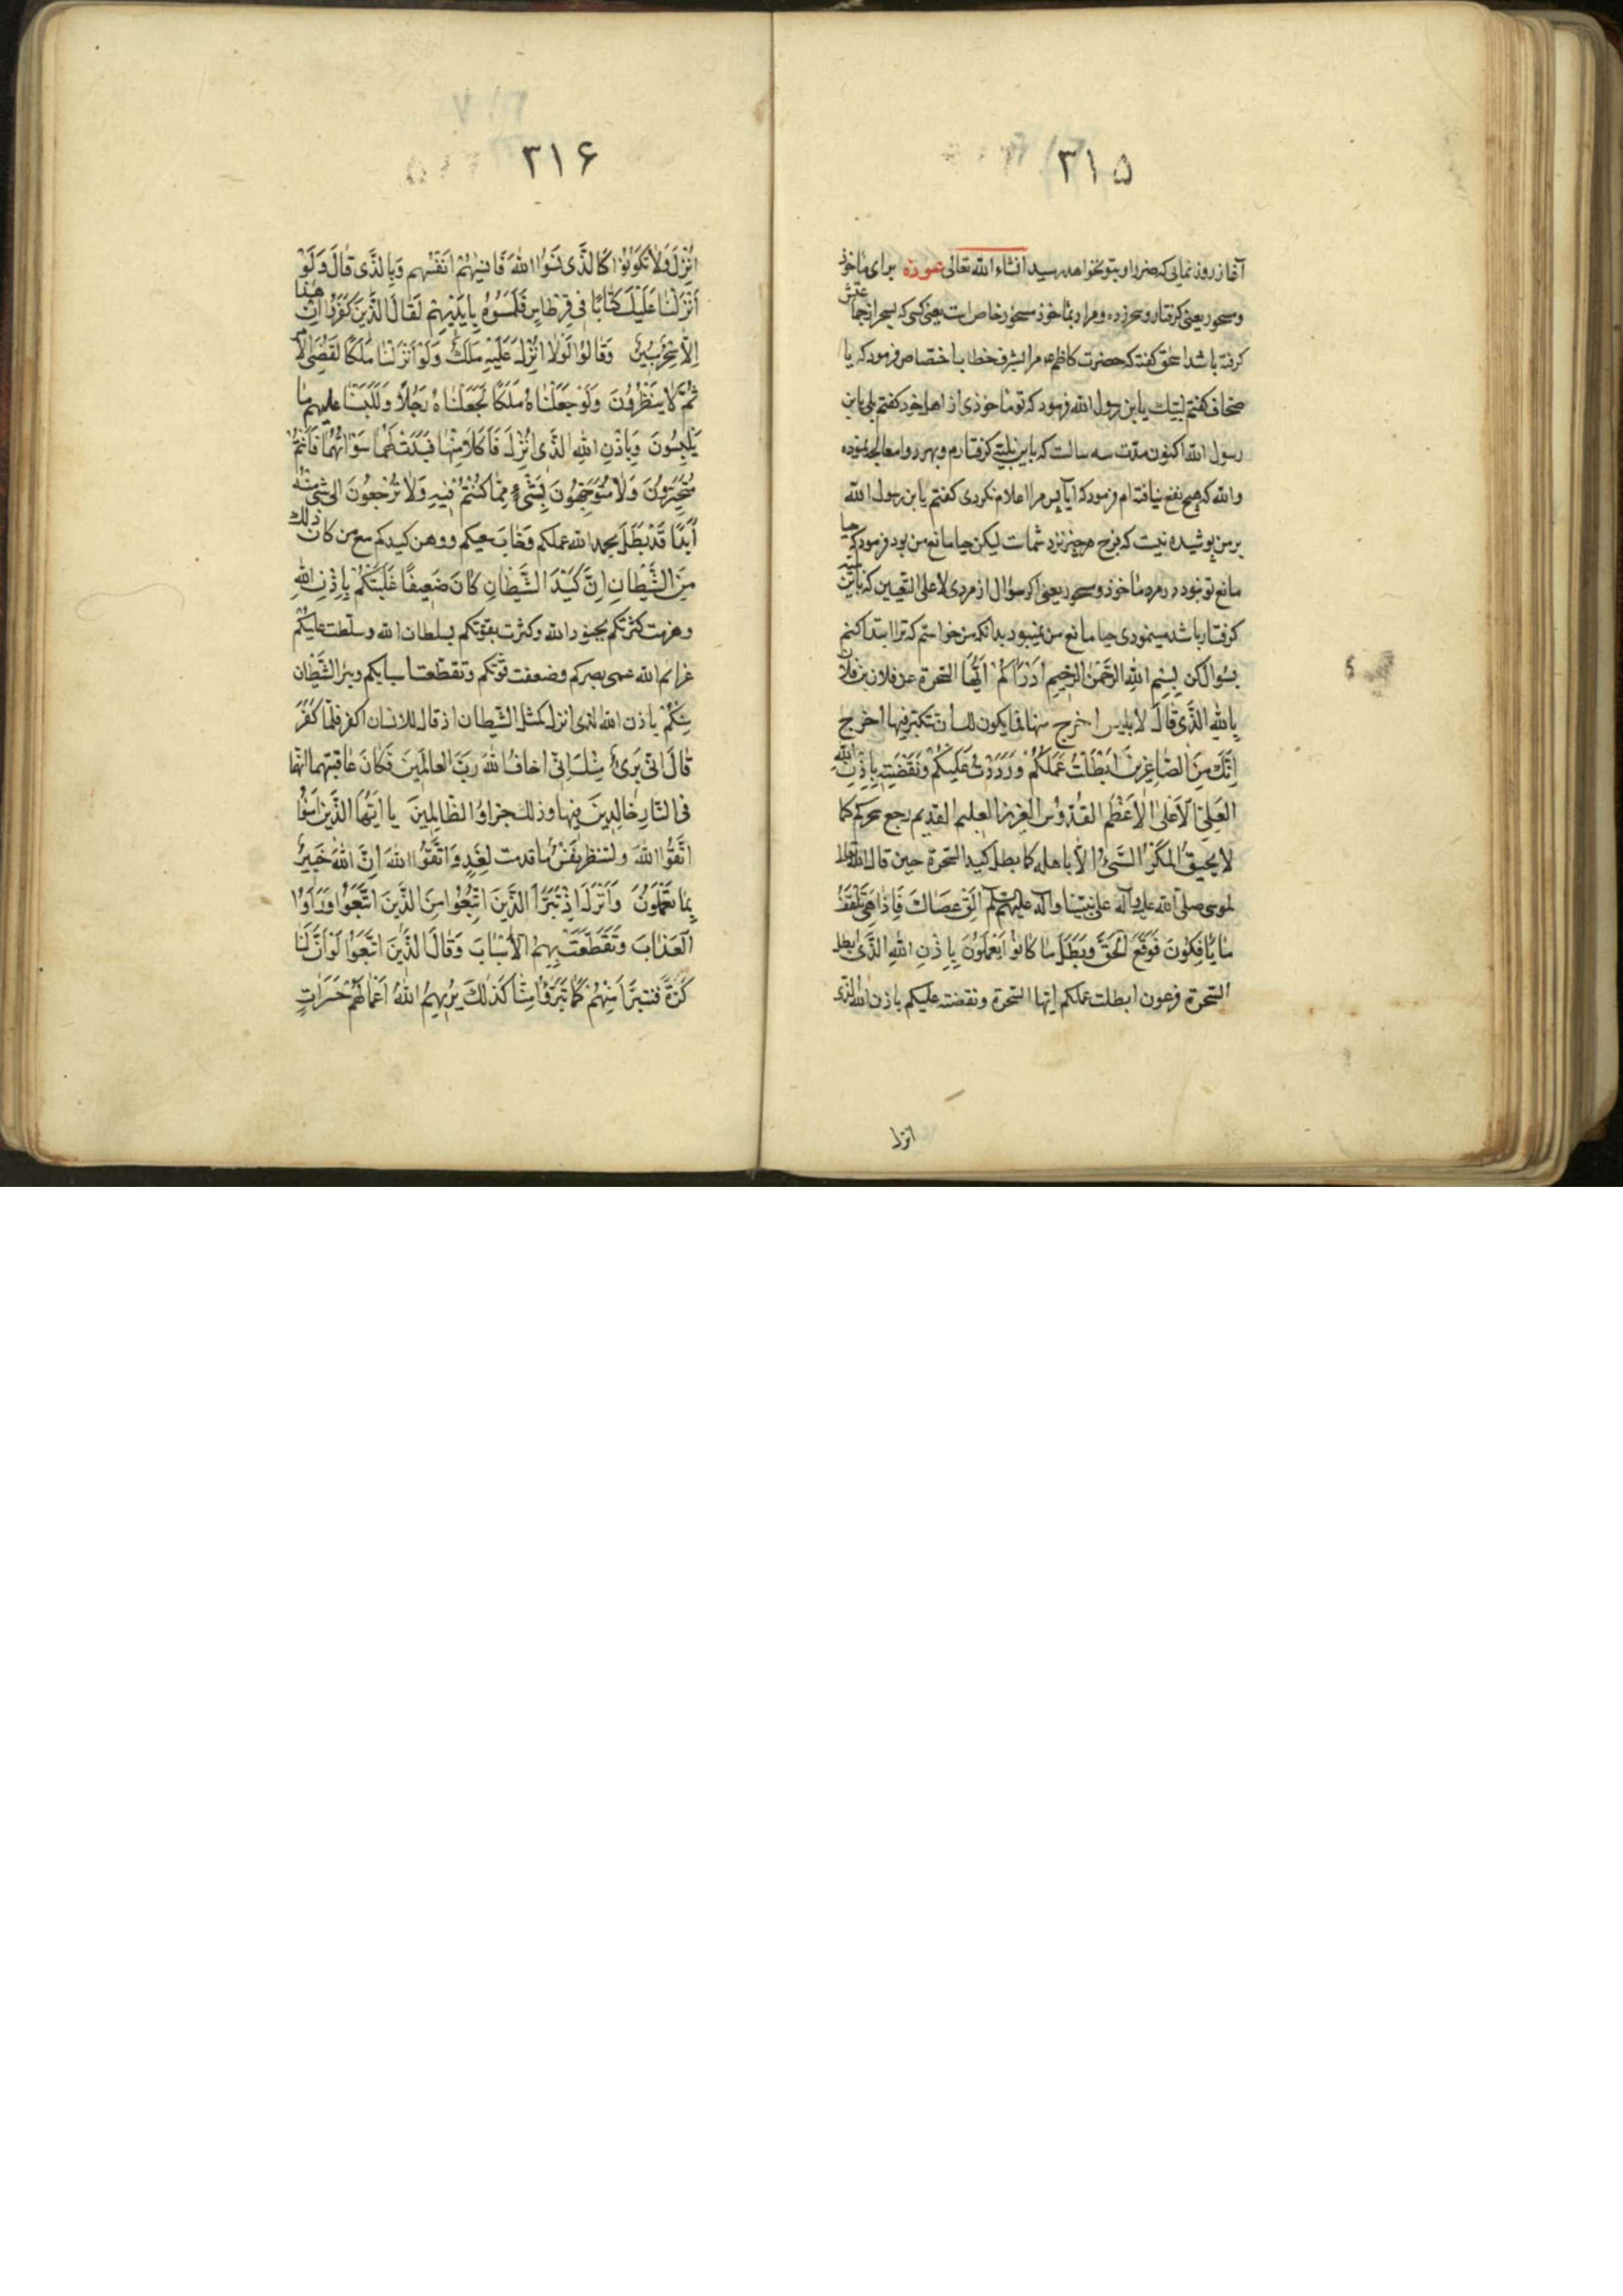 ۳۱۵
آغاز روز نمائی که ضرر او بتو نخواهد رسید انشاء الله تعالی عوذه برای مأخوذ
و مسحور یعنی گرفتار و سحر زده و مراد بمأخوذ مسحور خاص است یعنی کسی که بسحر از جماعتش
گرفته باشد اسحق گفته که حضرت کاظم ع مرا بشرف خطاب با اختصاص فرمود که یا
صحاف گفتم لبیک یا بن رسول الله فرمود که تو مأخوذی از اهل خود گفتم بلی یا بن
رسول الله اکنون مدت سه سالست که باین بلیتی گرفتارم و بهر دوا معالجه نموده
والله که هیچ نفع نیافته‌ام فرمود که آیا پس مرا اعلام نکردی گفتم یا بن رسول الله
بر من پوشیده نیست که فرح هر چیز نزد شماست لیکن حیا مانع من بود فرمود که حیا
مانع تو نبود در مرد مأخوذ و مسحور یعنی اگر سؤال از مردی لا علی التعیین که باین
گرفتار باشد مینمودی حیا مانع من نمیبود بدانکه من خواستم که ترا ابتدا کنم
بسؤال کن بِسْمِ اللهِ الرَّحْمٰنِ الرَّحِيمِ اَدْرَأكُمْ اَيُّهَا السحرة عن فلان بن فلان
بِاللهِ الَّذِي قَالَ لابلیس اخرج منها فما یکون لک ان تتکبر فیها اخرج
اِنَّكَ مِنَ الصَّاغِرِينَ اَبْطَلْتُ عَمَلَكُمْ وَرَدَدْتُ عَلَيْكُمْ وَنَقَضْتِهِ بِاِذْنِ اللهِ
العَلِيِّ الْاَعْلَى الْاَعْظَمِ القُدُّوسِ العَزِيزِ العليم القديم رجع سحرکم کما
لا يَحِيقُ الْمَكْرُ السَّيِّئُ الّا باهله کما بطل کید السحرة حین قال الله تعالی
لموسی صلی الله علیه وآله علی نبینا وآله علیهم السلم اَلْقِ عَصَاكَ فَاِذَا هِيَ تَلْقَفُ
مَا يَأْفِكُونَ فَوَقَعَ الْحَقُّ وَبَطَلَ مَا كَانُوا يَعْمَلُونَ بِاِذْنِ اللهِ الَّذِي ابطل
السحرة فرعون ابطلت عملکم ایها السحرة ونقضته علیکم باذن الله الذی
انزل
۳۱۶
اُنْزِلَ وَلَا تَكُونُوا كَالَّذِي نَسُوا اللهَ فَاَنْسٰهُمْ اَنْفُسَهم وَبِالَّذِي قَالَ وَلَوْ
اَنْزَلْنَا عَلَيْكَ كِتَابًا فِي قِرْطَاسٍ فَلَمَسُوهُ بِاَيْدِيهِمْ لَقَالَ الَّذِينَ كَفَرُوا اِنْ هٰذَا
اِلَّا سِحْرٌ مُبِينٌ وَقَالُوا لَوْلَا اُنْزِلَ عَلَيْهِ مَلَكٌ وَلَوْ اَنْزَلْنَا مَلَكًا لَقُضِيَ الْاَ
ثُمَّ لَا يُنْظَرُونَ وَلَوْ جَعَلْنَاهُ مَلَكًا لَجَعَلْنَاهُ رَجُلًا وَلَلَبَسْنَا علیهم مَا
يَلْبِسُونَ وَبِاِذْنِ اللهِ الَّذِي اَنْزَلَ فَاَكَلَا مِنْهَا فَبَدَتْ لَهُمَا سَوْآتُهُمَا فَاَنْتُمْ
مُتَحَيِّرُونَ وَلَا مُتَوَجِّهُونَ بِشَيْءٍ مِمَّا كُنْتُمْ فِيهِ وَلَا تَرْجِعُونَ الی شیء منه
اَبَدًا قَدْ بَطَلَ بحمد الله عملکم وَخَابَ سعیکم ووهن کیدکم مع من کان ذلک
مِنَ الشَّيْطَانِ اِنَّ كَيْدَ الشَّيْطَانِ كَانَ ضَعِيفًا غَلَبَتْكُمْ بِاِذْنِ اللهِ
وهزمت کثرتکم بجنود الله وکثرت بقوتکم بسلطان الله وسلّطت عَلَيْكُمْ
عزائم الله عمی بصرکم وضعفت قوّتکم وتقطّعت اسبابکم وبرئ الشَّيْطَان
مِنْكُمْ باذن الله الذی انزل کمثل الشیطان اذ قال للانسان اکفر فلمّا كَفَرَ
قَالَ اِنِّي بَرِيءٌ مِنْكَ اِنِّي اَخَافُ اللهَ رَبَّ العَالَمِينَ فَكَانَ عَاقِبَتَهُمَا انّهما
فِي النَّارِ خَالِدَيْنِ فِيهَا وَذٰلِكَ جَزَاؤُ الظَّالِمِينَ يَا اَيُّهَا الَّذِينَ اٰمَنُوا
اتَّقُوا اللهَ ولتنظر نَفْسٌ مَا قدمت لِغَدٍ وَاتَّقُوا اللهَ اِنَّ اللهَ خَبِيرٌ
بِمَا تَعْمَلُونَ وَاَنْزَلَ اِذْ تَبَرَّأَ الَّذِينَ اتُّبِعُوا مِنَ الَّذِينَ اتَّبَعُوا وَرَاَوُا
الْعَذَابَ وَتَقَطَّعَتْ بِهِمُ الْاَسْبَابُ وَقَالَ الَّذِينَ اتَّبَعُوا لَوْ اَنَّ لَنَا
كَرَّةً فَنَتَبَرَّأَ مِنْهُمْ كَمَا تَبَرَّؤُا مِنَّا كَذٰلِكَ يُرِيهِمُ اللهُ اَعْمَالَهُمْ حَسَرَاتٍ